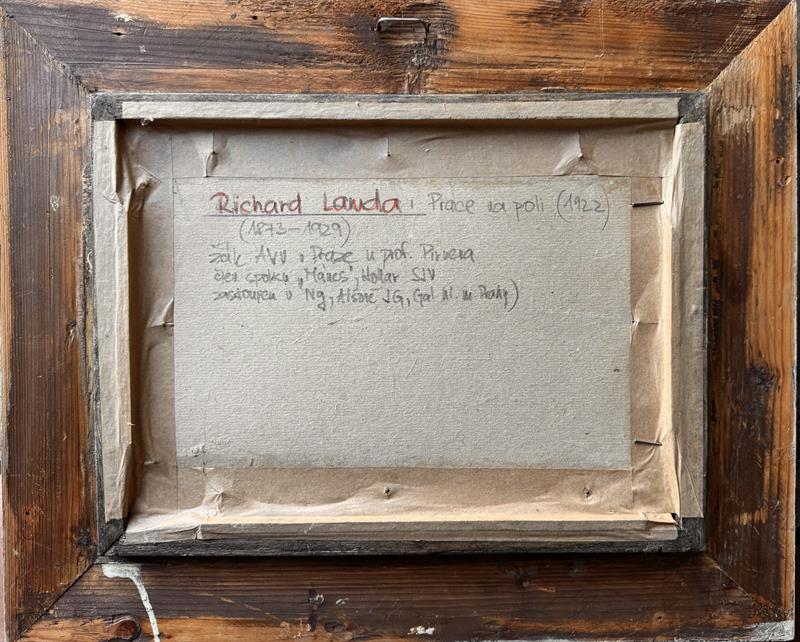 Richard Lauda: Práce na poli (1922)
(1873–1929)
žák AVU v Praze u prof. Pirnera
člen spolku „Mánes“, Hollar SJV
zastoupen v Ng, Alšově JG, Gal hl. m. Prahy)